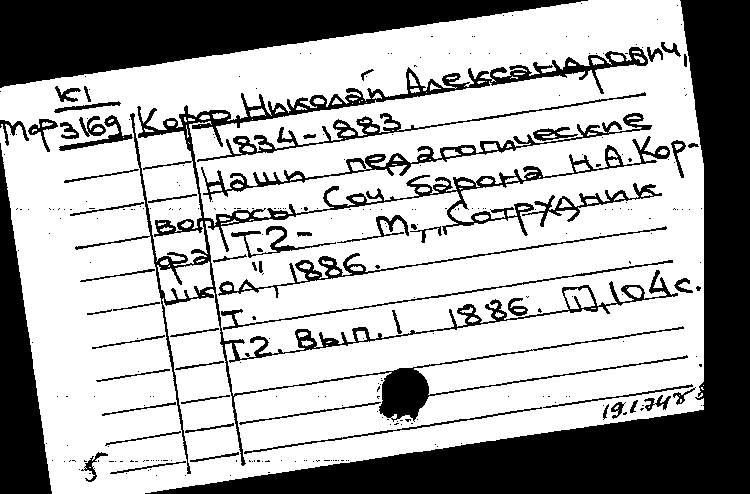 К1
Мор 3169 Корф, Николай Александрович,
1834-1883.
Наши педагогические
вопросы. Соч. барона Н.А.Кор-
фа. Т.2- М., „Сотрудник
школ", 1886.
т.
Т.2. Вып.1. 1886. П,104с.
19.1.74г
5